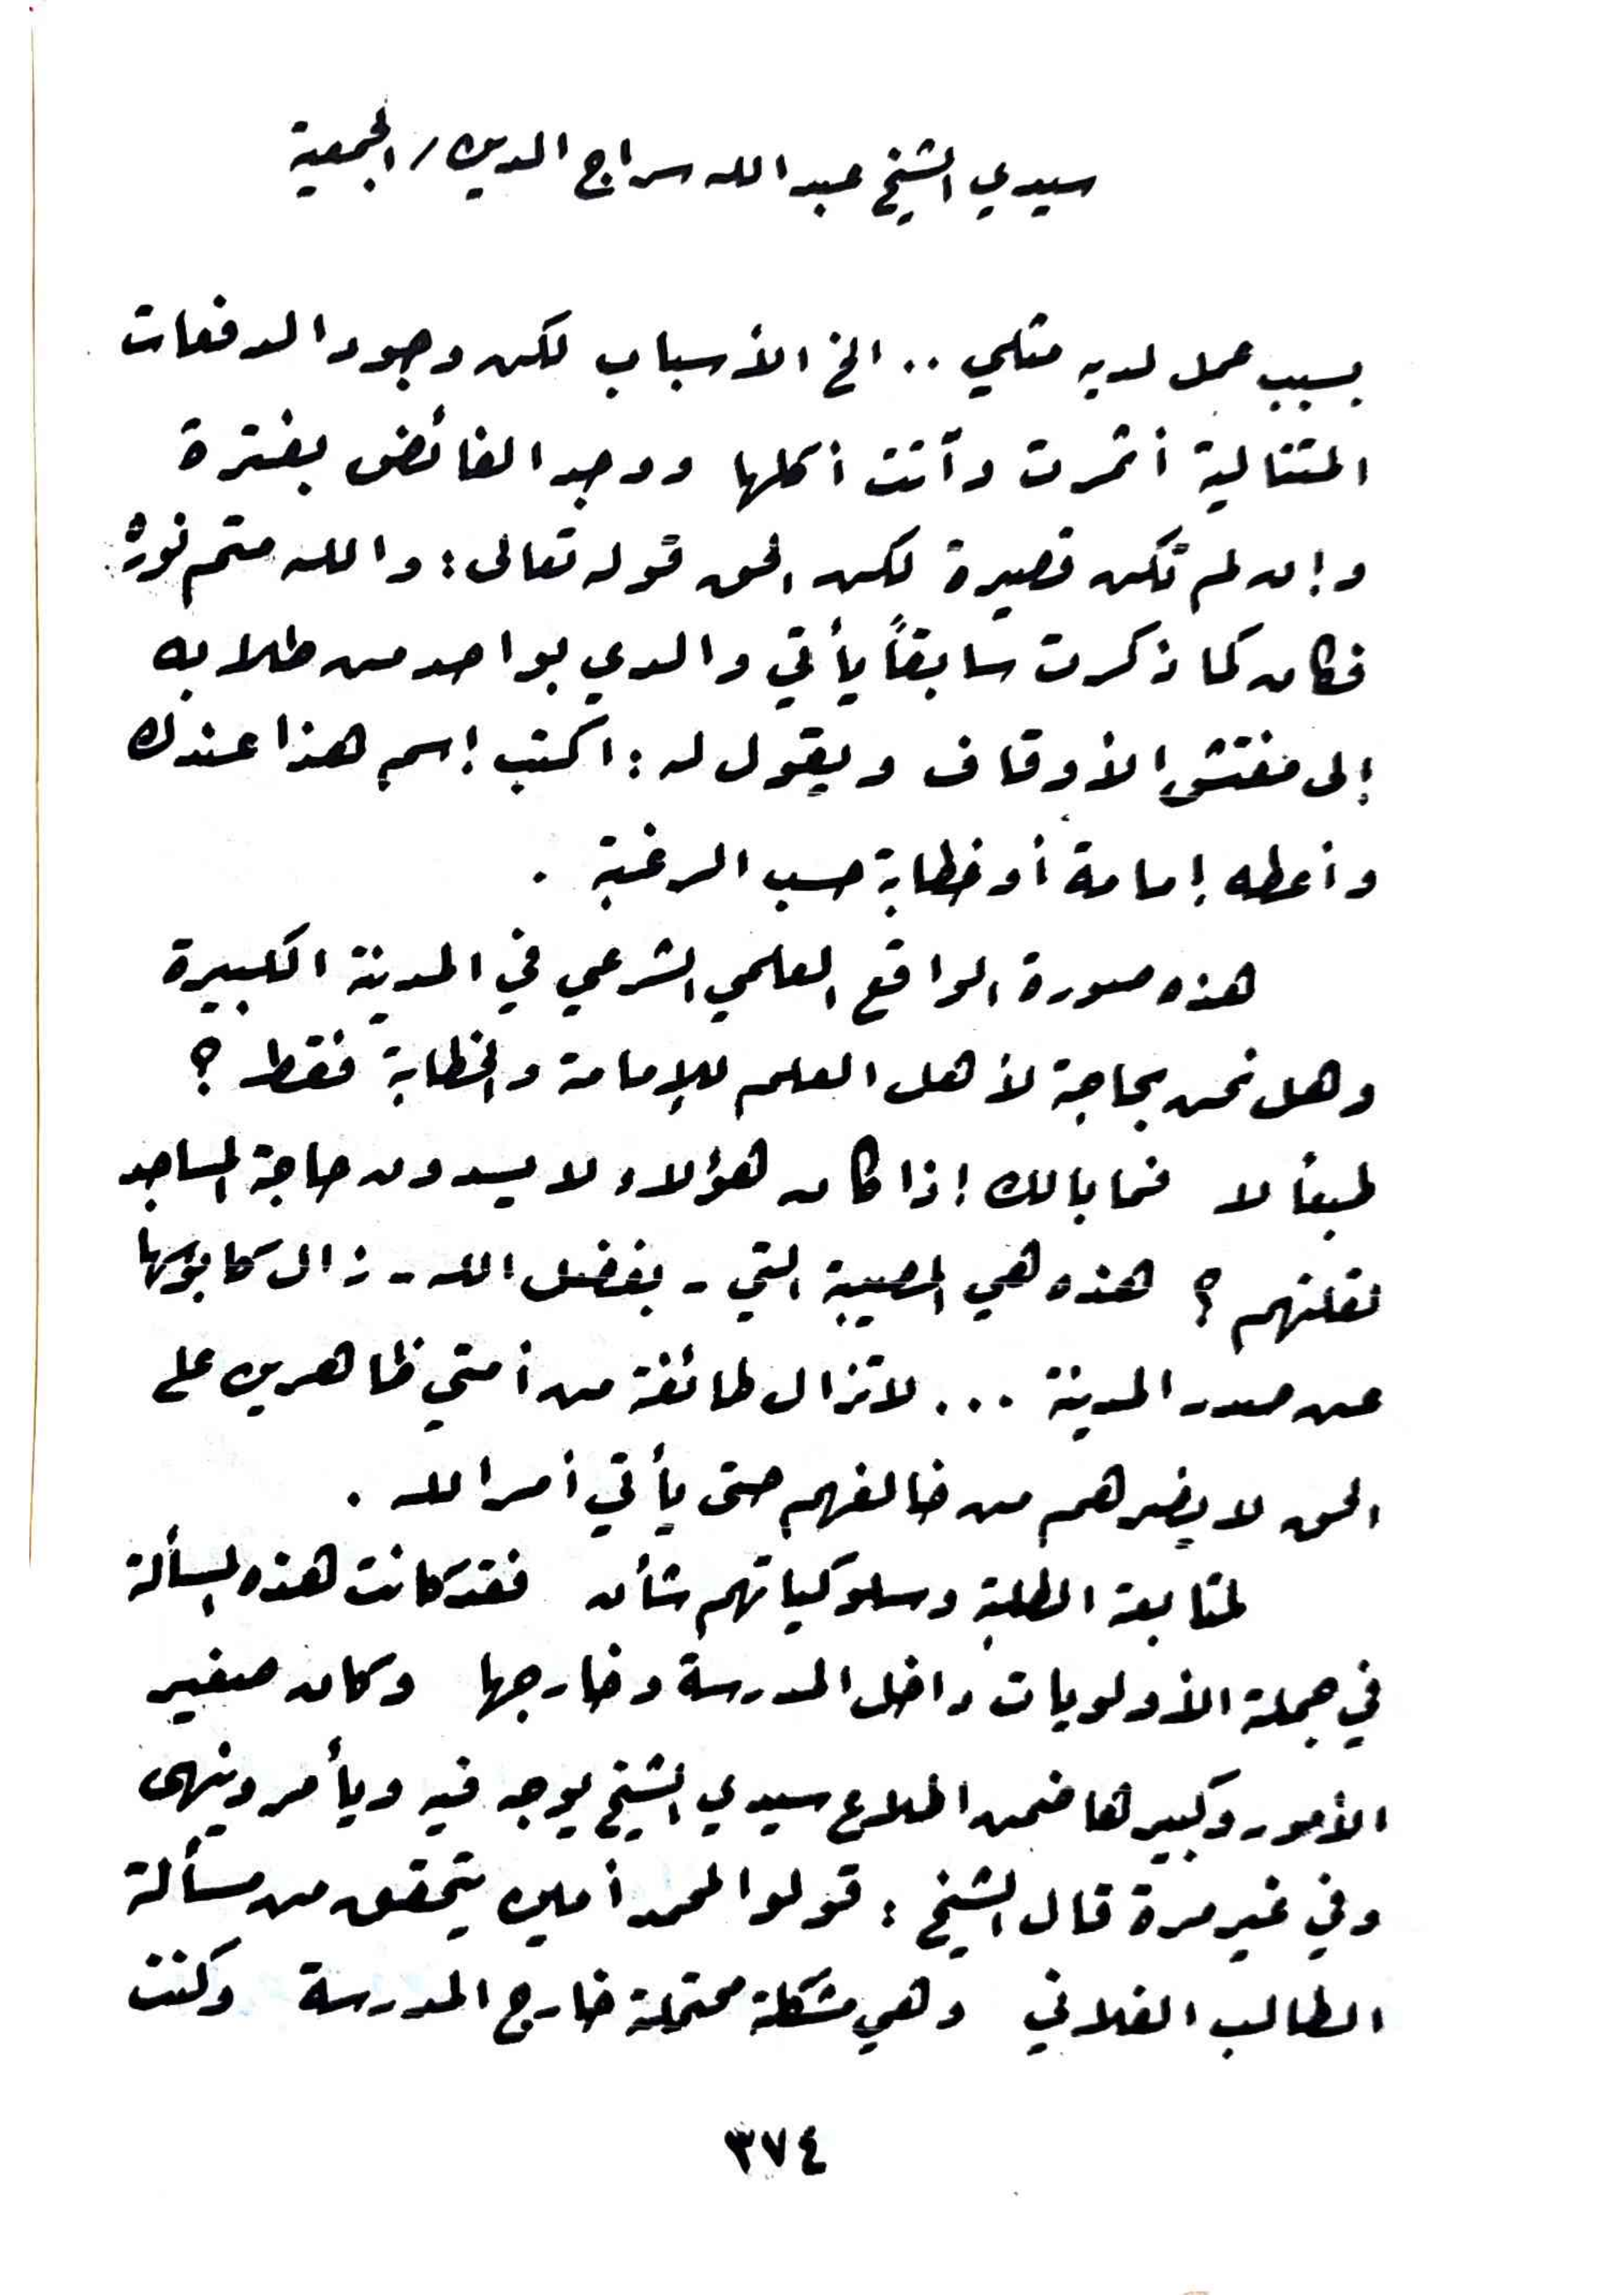 سيدي الشيخ عبد الله سراج الدين / الجمعية
بسبب عمل لديه مثلي .. الخ الأسباب لكن وجود الدفعات
المتتالية أثمرت وآتت أكلها ووجد الفائض بفترة
وإن لم تكن قصيرة لكن الحق قوله تعالى : والله متم نوره
فكان كما ذكرت سابقاً يأتي والدي بواحد من طلابه
إلى مفتش الأوقاف ويقول له : اكتب إسم هذا عندك
وأعطه إمامة أو خطابة حسب الرغبة .
هذه صورة الواقع العلمي الشرعي في المدينة الكبيرة
وهل نحن بحاجة لأهل العلم للإمامة والخطابة فقط ؟
طبعاً لا فما بالك إذا كان هؤلاء لا يسدون حاجة المساجد
لقلتهم ؟ هذه هي المصيبة التي - بفضل الله - زال كابوسها
عن صدر المدينة ... لا تزال طائفة من أمتي ظاهرين على
الحق لا يضرهم من خالفهم حتى يأتي أمر الله .
لمتابعة الطلبة وسلوكياتهم شأن فقد كانت هذه المسألة
في جملة الأولويات داخل المدرسة وخارجها وكان صغير
الأمور وكبيرها ضمن اطلاع سيدي الشيخ يوجه فيه ويأمر وينهى
وفي غير مرة قال الشيخ : قولوا لمحمد أمين يتحقق من مسألة
الطالب الفلاني وهي مشكلة محتملة خارج المدرسة وكنت
٣٧٤